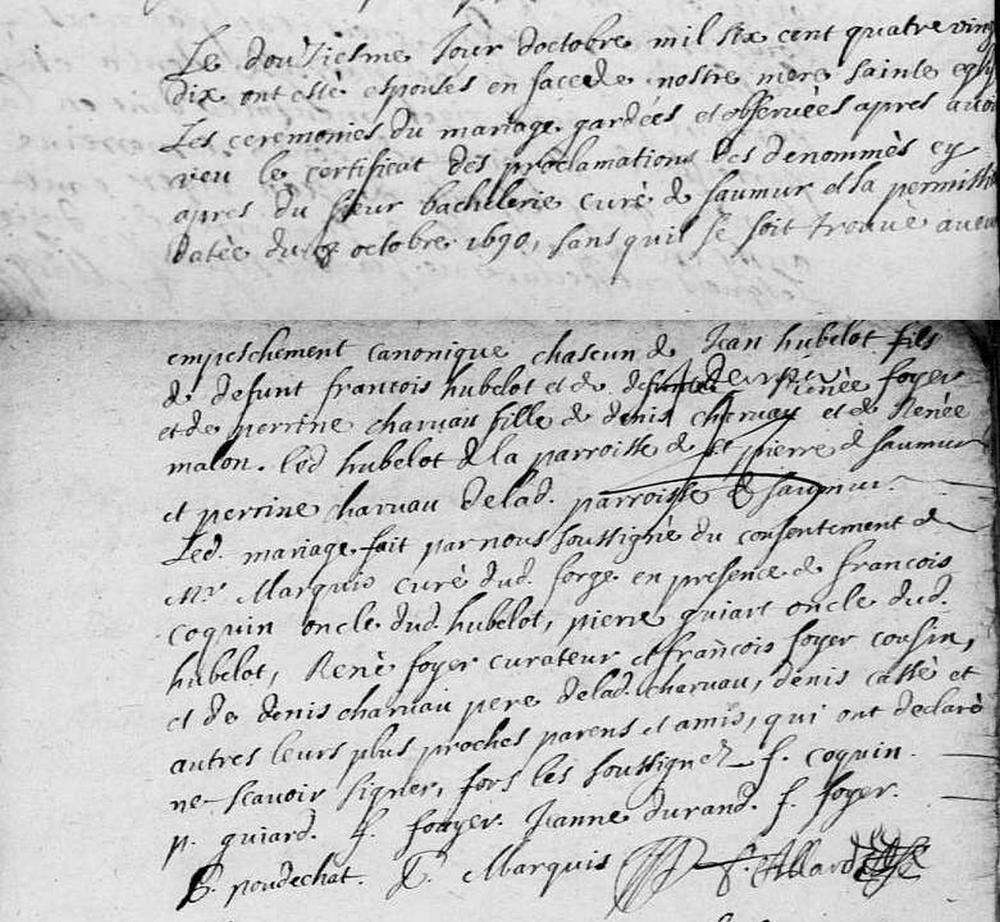 Le douziesme Jour doctobre mil six cent quatre ving
dix ont esté espousés en face de nostre mere sainte egli
Les ceremonies du mariage gardées et observées apres avoi
veu le certificat des proclamations des denommés cy
apres du sieur bachelerie curé de saumur et sa permissi
datée du octobre 1690, sans quil se soit trouvé aucu
empeschement canonique chascun de Jean hubelot fils
de defunt francois hubelot et de Renée foyer
et de perrine charuau fille de denis charuau et de Renée
malon. led hubelot de la parroisse de st pierre de saumur
et perrine charuau de lad. parroisse de saumur.
Led. mariage fait par nous soussigné du consentement de
Mr. Marquis curé dud. forge en presence de francois
coquin oncle dud. hubelot, pierre guiart oncle dud.
hubelot, René foyer curateur et francois foyer cousin,
et de denis charuau pere de lad. charuau, denis cassé et
autres leurs plus proches parens et amis, qui ont declaré
ne scavoir signer, fors les soussignez f. coquin.
p. guiard. f. fouyer. Jeanne durand. f. foyer.
poudechat. Marquis f. Allard